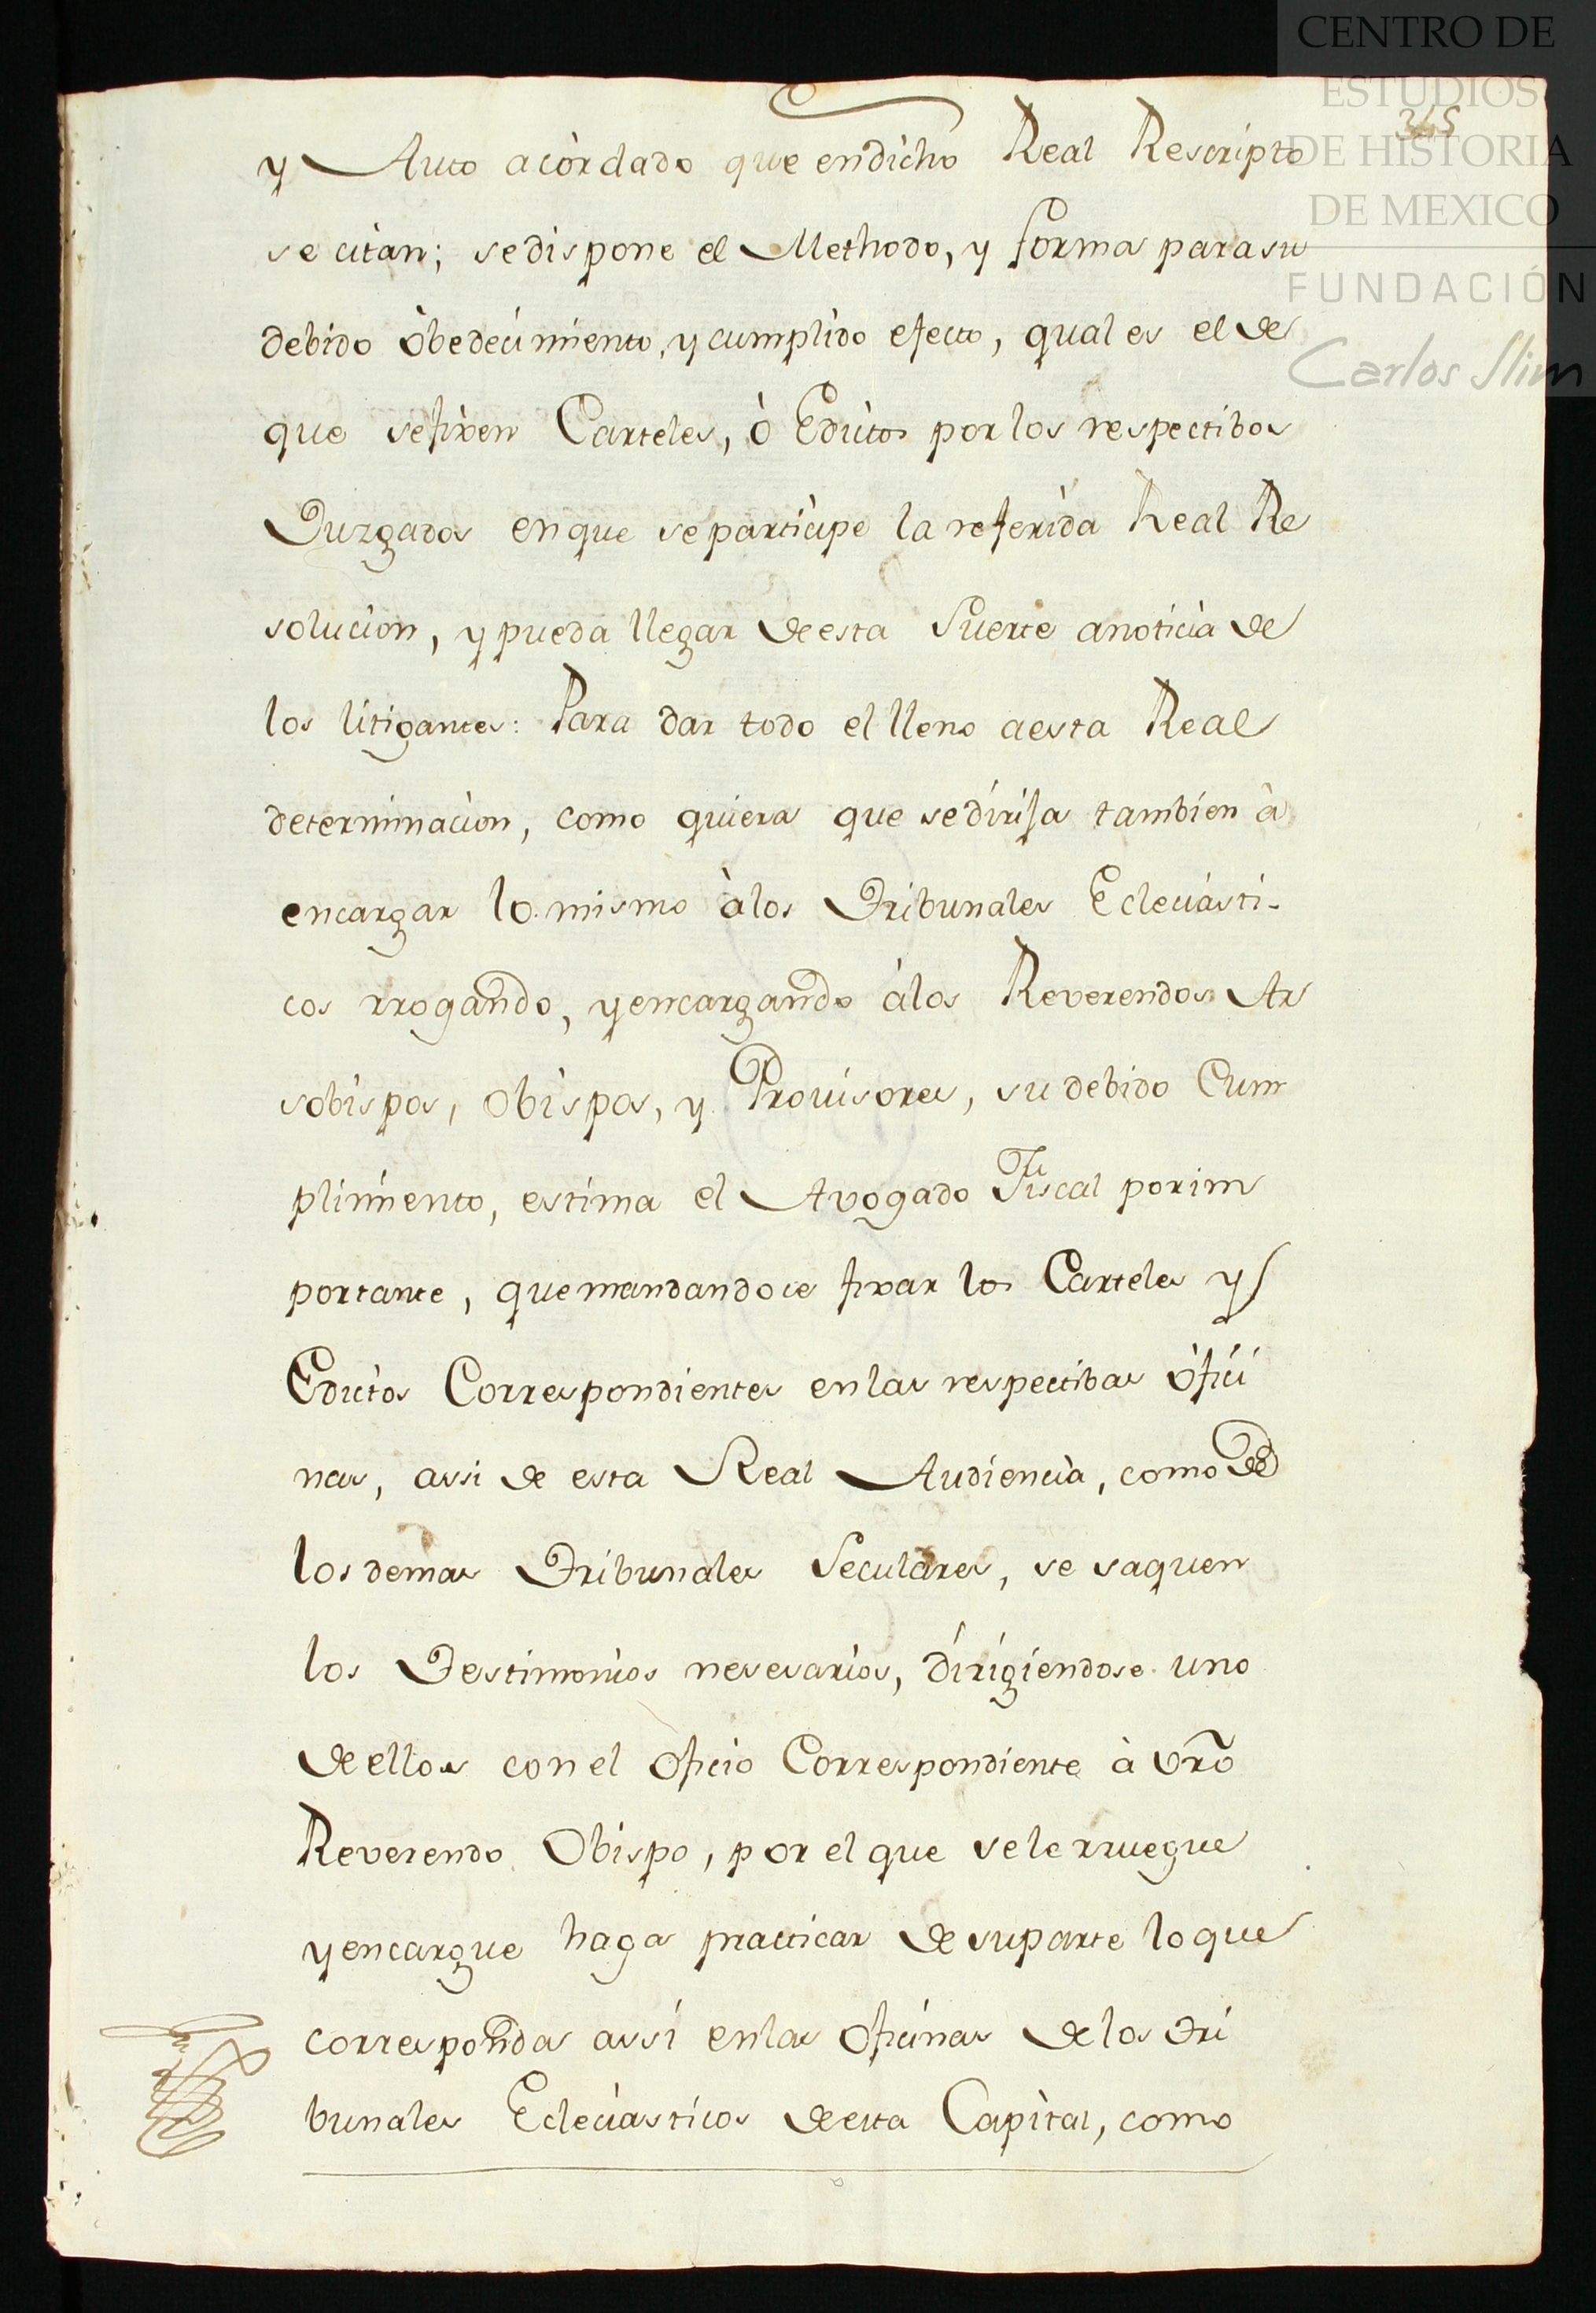 CENTRO DE
ESTUDIOS
DE HISTORIA
DE MEXICO
FUNDACIÓN
Carlos Slim
345
y Auto acòrdado que endicho Real Rescripto
se citan; sedispone el Methodo, y forma parasu
debido òbedecimiento, y cumplido efecto, qual es el de
que sefixen Carteles, ò Edictos por los respectibos
Juzgados enque separticipe la referida Real Re
solucion, y pueda llegar deesta Suerte anoticia de
los litigantes: Para dar todo el lleno aesta Real
determinacion, como quiera que sedirija tambien à
encargar lo mismo àlos Tribunales Ecleciasti-
cos rrogando, yencargando álos Reverendos Ar
sobispos, Obispos, y Provisores, su debido Cum
plimiento, estima el Avogado Fiscal porim
portante, quemandandoce fixar los Carteles y
Edictos Correspondientes enlas respectibas ofici
nas, assi de esta Real Audiencia, como de
los demas Tribunales Seculares, se saquen
los Testimonios nesesarios, dirigiendose uno
deellos con el oficio Correspondiente à vrõ
Reverendo Obispo, por el que sele rruegue
yencargue haga practicar de suparte loque
corresponda assi enlas oficinas delos Tri
bunales Ecleciasticos deesta Capital, como